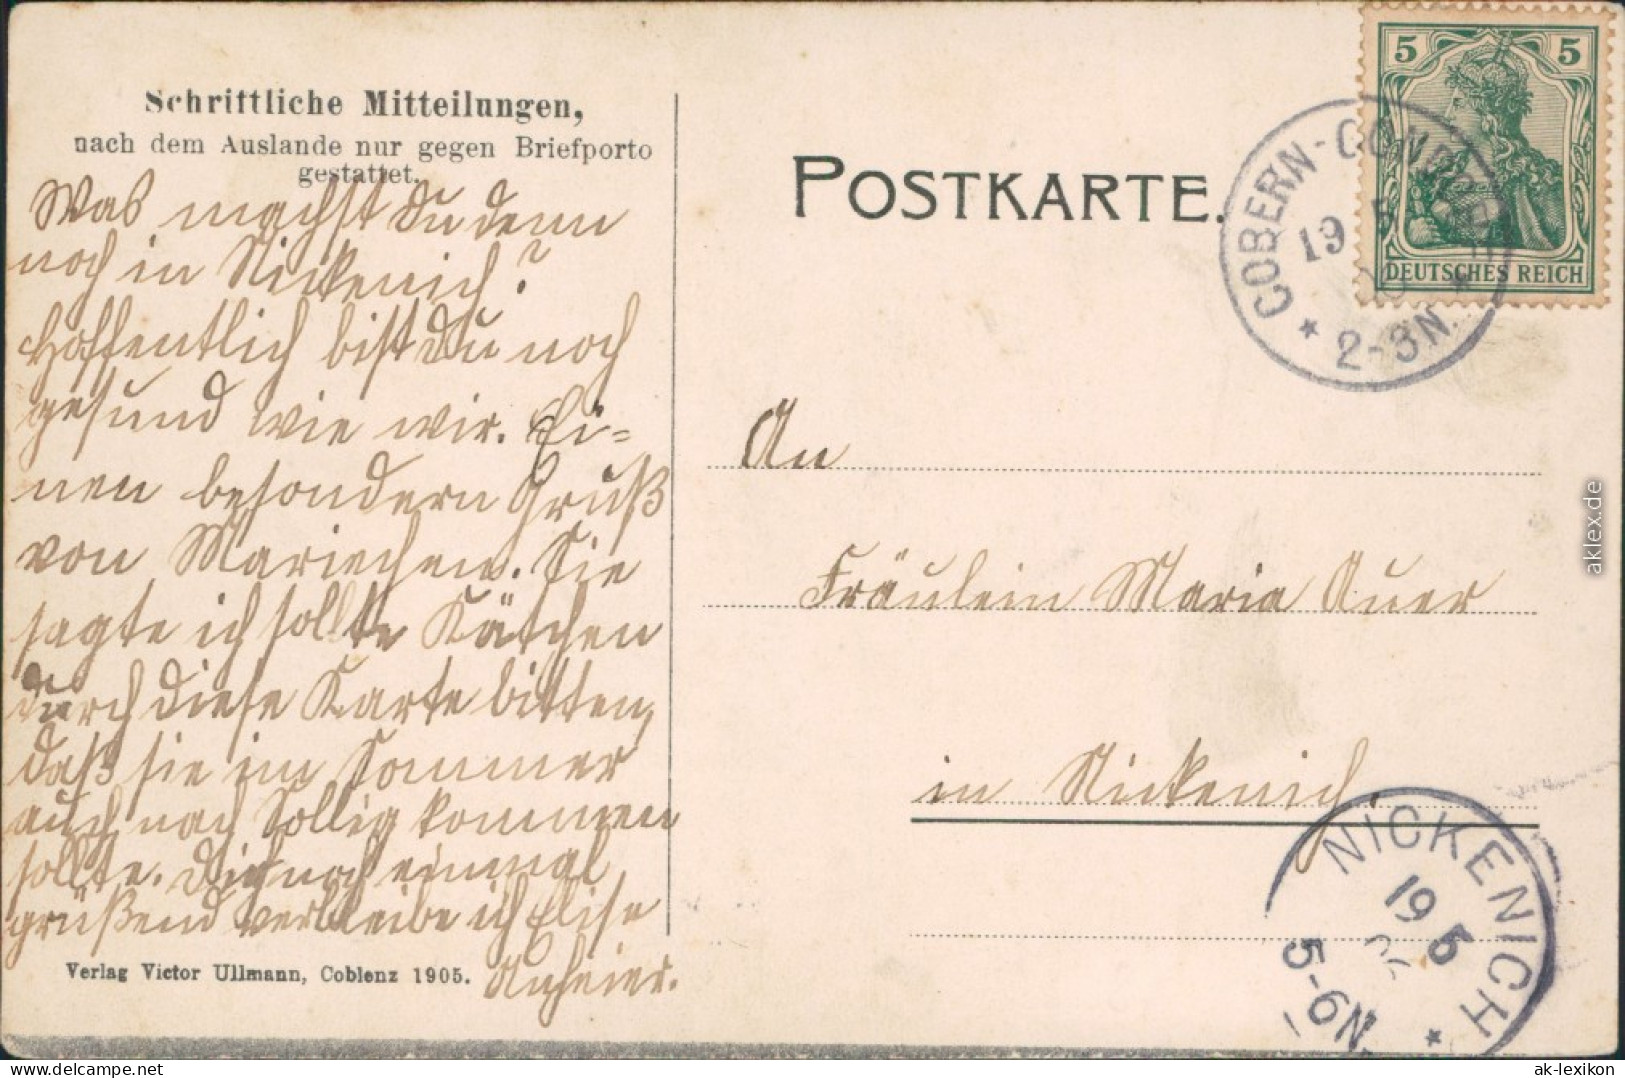 Schriftliche Mitteilungen,
nach dem Auslande nur gegen Briefporto
gestattet.
Was machst du denn
noch in Nickenich?
Hoffentlich bist du noch
gesund wie wir. Ei=
nen besondern Gruß
von Mariechen. Sie
sagte ich sollte Kätchen
durch diese Karte bitten,
daß sie im Sommer
auch nach Sollig kommen
sollte. Dich noch einmal
grüßend verbleibe ich Elise
Anheier.
Verlag Victor Ullmann, Coblenz 1905.
POSTKARTE.
5 5
DEUTSCHES REICH
COBERN-GONDORF
19 5
* 2-3N. *
An
Fräulein Maria Auer
in Nickenich.
NICKENICH
19 5
5-6N. *
aklex.de
www.delcampe.net
ak-lexikon